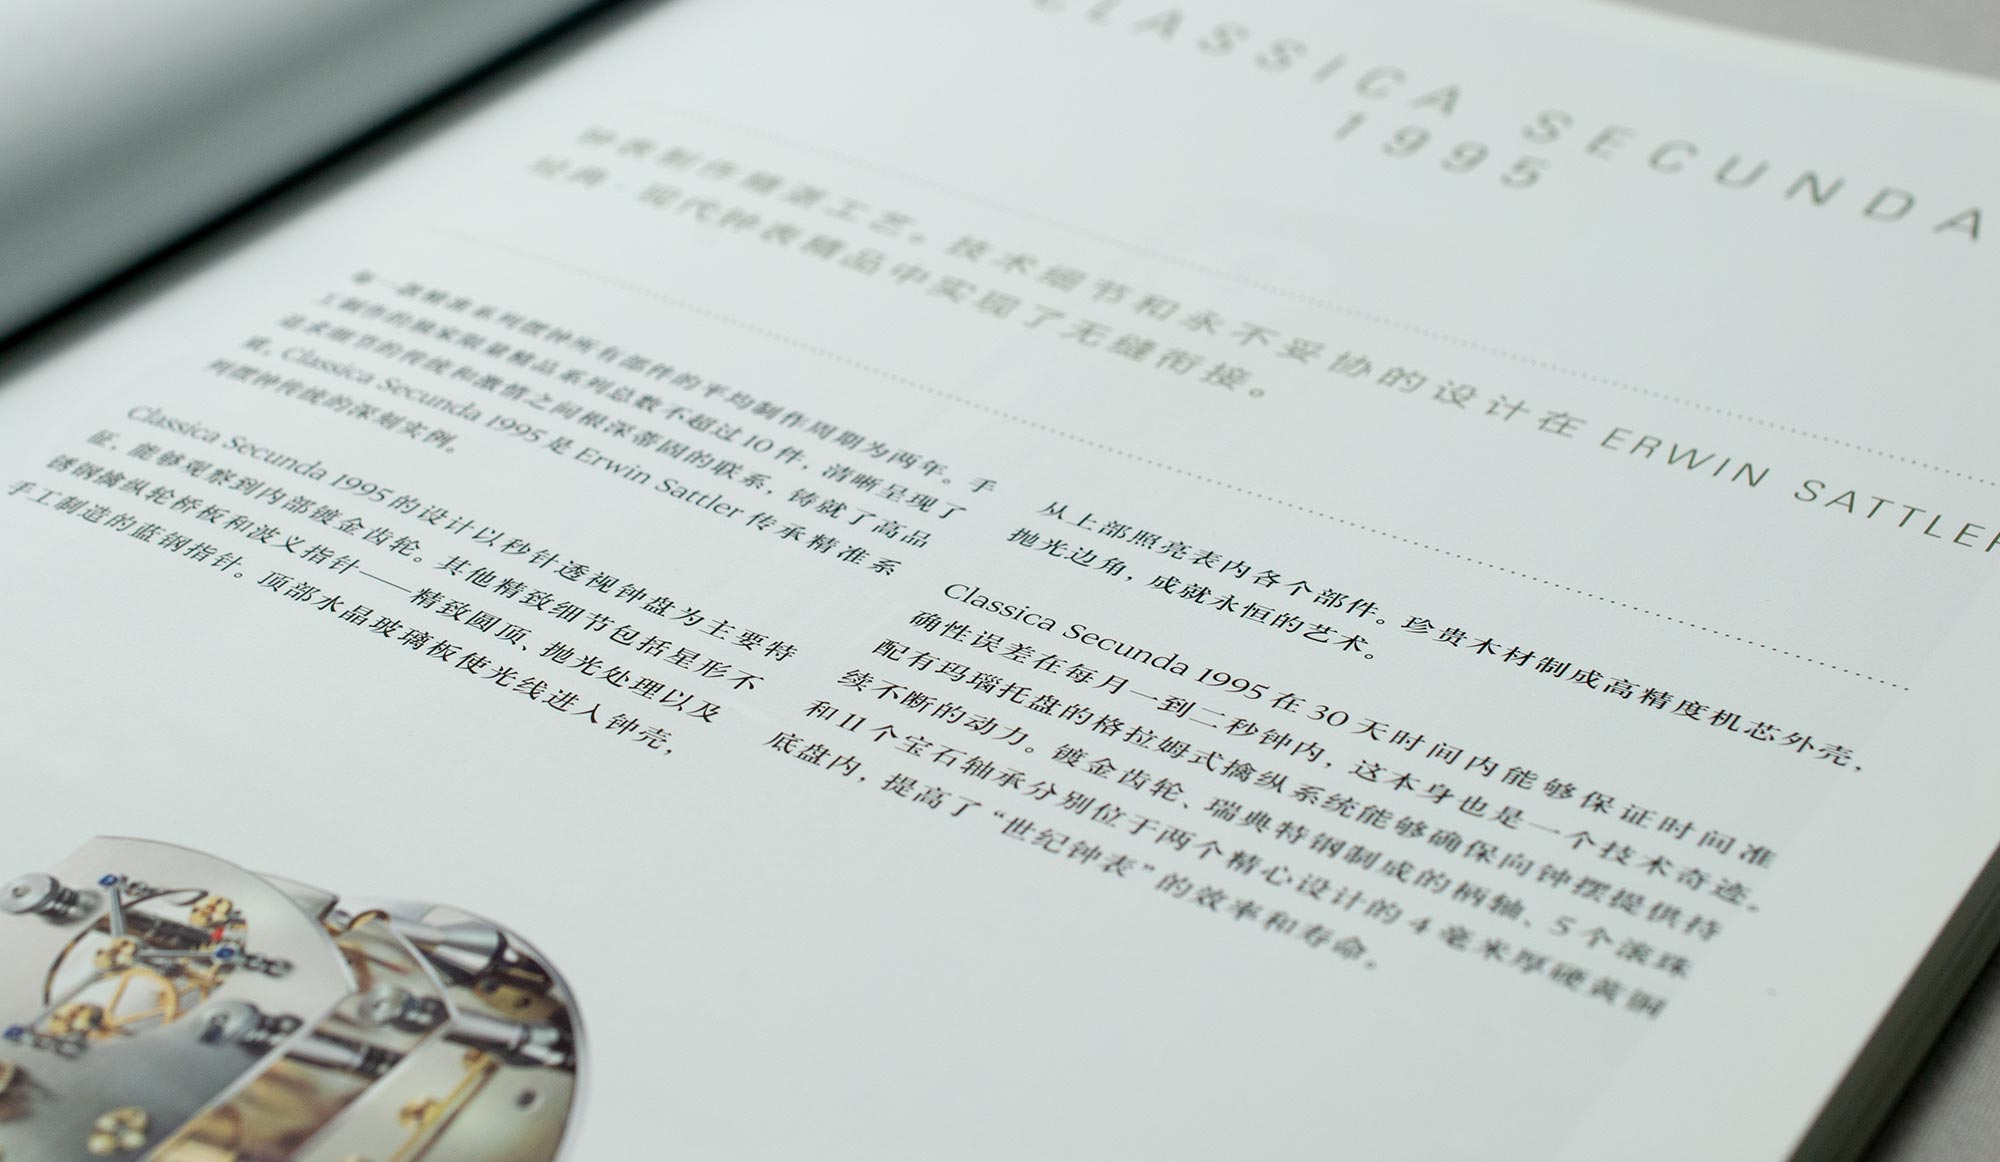 CLASSICA SECUNDA
1995
钟表制作精湛工艺。技术细节和永不妥协的设计在 ERWIN SATTLER
经典·现代钟表精品中实现了无缝衔接。
每一款精准系列摆钟所有部件的平均制作周期为两年。手
工制作的独家限量精品系列总数不超过10件，清晰呈现了
追求细节的传统和激情之间根深蒂固的联系，铸就了高品
质。Classica Secunda 1995 是 Erwin Sattler 传承精准系
列摆钟传统的深刻实例。
Classica Secunda 1995 的设计以秒针透视钟盘为主要特
征，能够观察到内部镀金齿轮。其他精致细节包括星形不
锈钢擒纵轮桥板和波义指针——精致圆顶、抛光处理以及
手工制造的蓝钢指针。顶部水晶玻璃板使光线进入钟壳，
从上部照亮表内各个部件。珍贵木材制成高精度机芯外壳，
抛光边角，成就永恒的艺术。
Classica Secunda 1995 在 30 天时间内能够保证时间准
确性误差在每月一到二秒钟内，这本身也是一个技术奇迹。
配有玛瑙托盘的格拉姆式擒纵系统能够确保向钟摆提供持
续不断的动力。镀金齿轮、瑞典特钢制成的柄轴、5 个滚珠
和 11 个宝石轴承分别位于两个精心设计的 4 毫米厚硬黄铜
底盘内，提高了“世纪钟表”的效率和寿命。